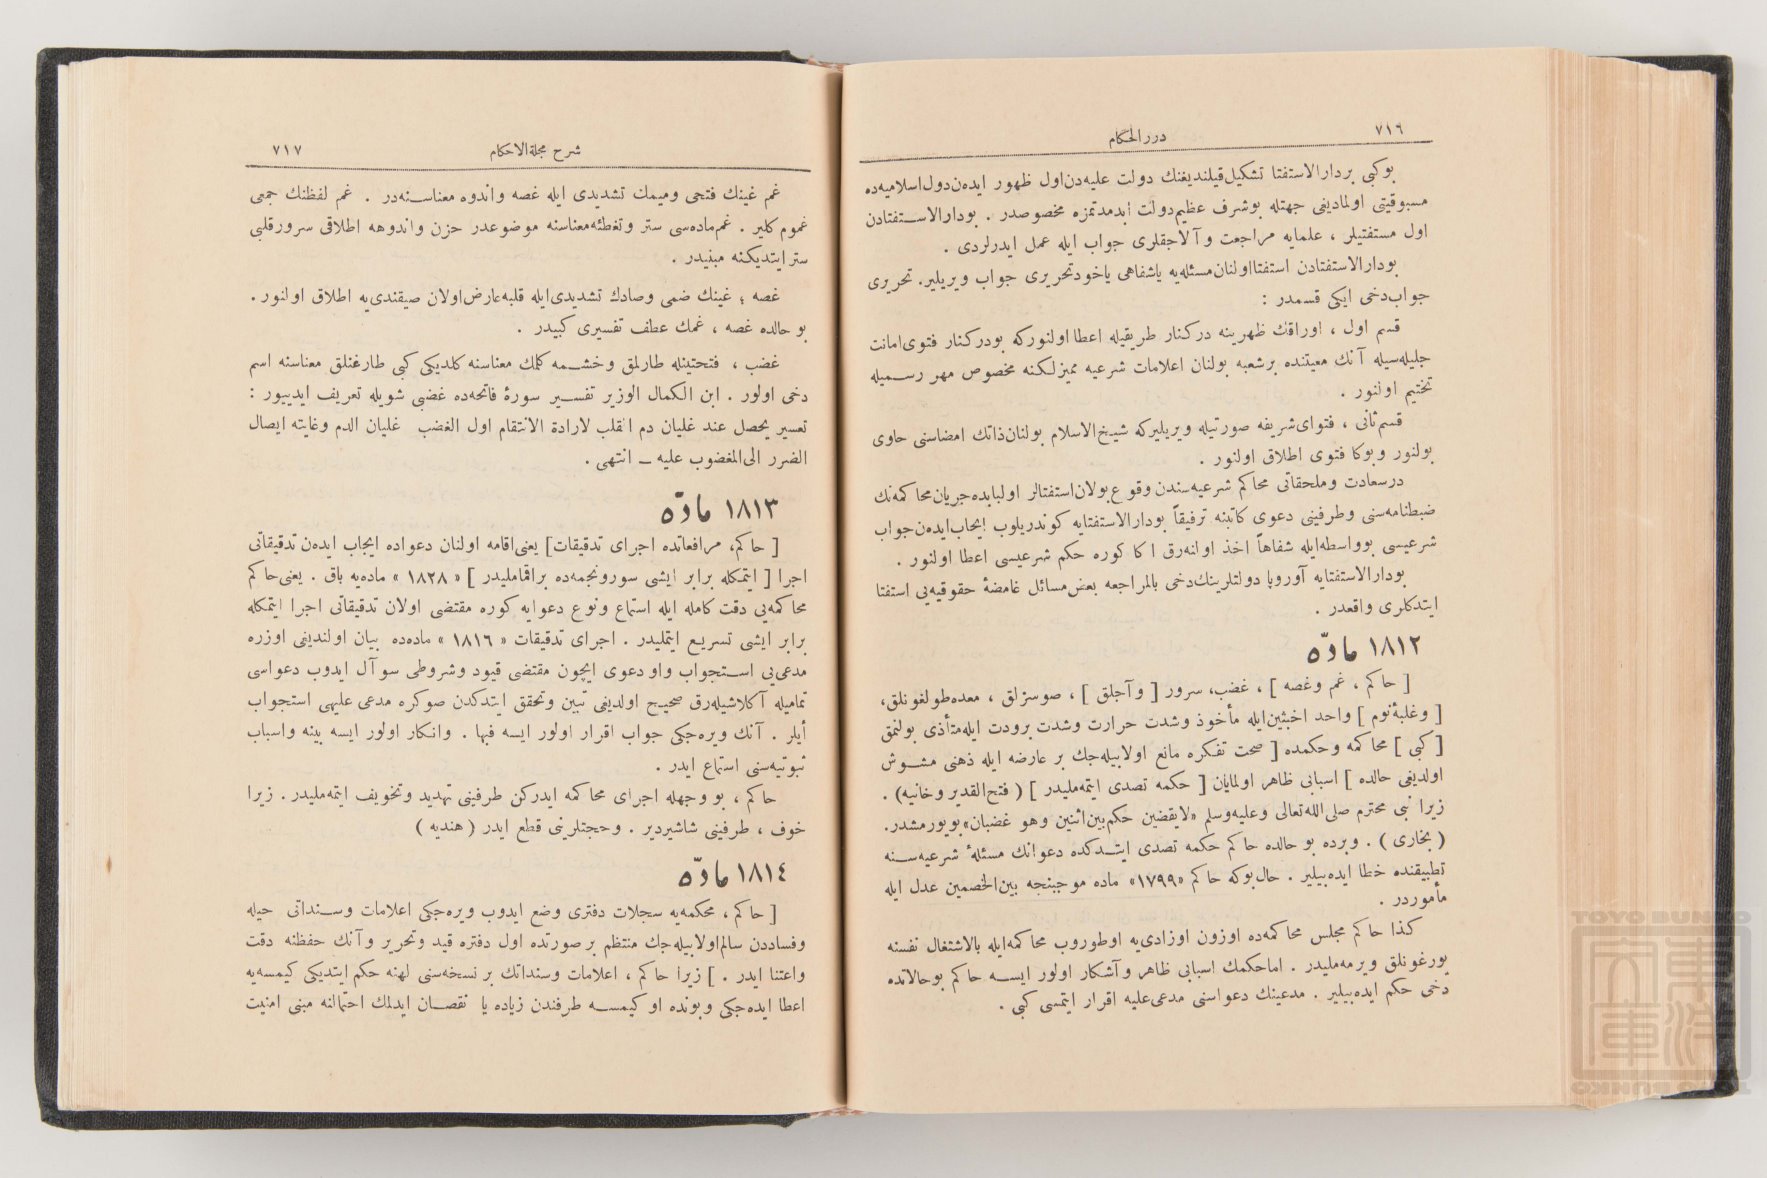 ٧١٦
دررالحكام
بوكبی بردارالاستفتا تشكیل‌قیلندیغنك دولت علیه‌دن‌اول ظهور ایده‌ن‌دول‌اسلامیه‌ده
مسبوقیتی اولمادیغی جهتله بوشرف عظیم‌دولت ابدمدتمزه مخصوصدر . بودارالاستفتادن
اول مستفتیلر ، علمایه مراجعت و آلاجقلری جواب ایله عمل ایدرلردی .
بودارالاستفتادن استفتااولنان‌مسئله‌یه یاشفاهی یاخودتحریری جواب ویریلیر. تحریری
جواب‌دخی ایكی قسمدر :
قسم اول ، اوراقك ظهرینه دركنار طریقیله اعطااولنوركه بودركنار فتوی‌امانت
جلیله‌سیله آنك معیتنده برشعبه بولنان اعلامات شرعیه ممیزلكنه مخصوص مهر رسمیله
تختیم اولنور .
قسم‌ثانی ، فتوای‌شریفه صورتیله ویریلیركه شیخ‌الاسلام بولنان‌ذاتك امضاسنی حاوی
بولنور وبوكا فتوی اطلاق اولنور .
درسعادت وملحقاتی محاكم شرعیه‌سندن وقوع‌بولان‌استفتالر اولبابده‌جریان‌محاكمه‌نك
ضبطنامه‌سنی وطرفینی دعوی كاتبنه ترفیقاً بودارالاستفتایه كوندریلوب ایجاب‌ایده‌ن‌جواب
شرعیسی بوواسطه‌ایله شفاهاً اخذ اولنه‌رق اكا كوره حكم شرعیسی اعطا اولنور .
بودارالاستفتایه آوروپا دولتلرینك‌دخی بالمراجعه بعض‌مسائل غامضهٔ حقوقیه‌یی استفتا
ایتدكلری واقعدر .
١٨١٢ مادّه
[ حاكم ، غم وغصه ] ، غضب، سرور [ وآجلق ] ، صوسزلق ، معده‌طولغونلق،
[ وغلبهٔ‌نوم ] واحد اخبثین‌ایله مأخوذ وشدت حرارت وشدت برودت ایله‌متأذی بولنمق
[ كبی ] محاكمه وحكمده [ صحت تفكره مانع اولابیله‌جك بر عارضه ایله ذهنی مشوش
اولدیغی حالده ] اسبابی ظاهر اولمایان [ حكمه تصدی ایتمه‌ملیدر ] ( فتح‌القدیر وخانیه) .
زیرا نبی محترم صلی‌الله‌تعالی وعلیه‌وسلم «لایقضین حكم‌بین‌اثنین وهو غضبان»بویورمشدر.
( بخاری ) . وبرده بو حالده حاكم حكمه تصدی ایتدكده دعوانك مسئلهٔ شرعیه‌سنه
تطبیقنده خطا ایده‌بیلیر . حال‌بوكه حاكم «١٧٩٩» ماده موجبنجه بین‌الخصمین عدل ایله
مأموردر .
كذا حاكم مجلس محاكمه‌ده اوزون اوزادی‌یه اوطوروب محاكمه‌ایله بالاشتغال نفسنه
یورغونلق ویرمه‌ملیدر . اماحكمك اسبابی ظاهر وآشكار اولور ایسه حاكم بوحالاتده
دخی حكم ایده‌بیلیر . مدعینك دعواسنی مدعی‌علیه اقرار ایتمسی كبی .
شرح مجلة‌الاحكام
٧١٧
غم غینك فتحی ومیمك تشدیدی ایله غصه واندوه معناسنه‌در . غم لفظنك جمعی
غموم كلیر . غم‌ماده‌سی ستر وتغطئه‌معناسنه موضوعدر حزن واندوهه اطلاقی سرورقلبی
ستر ایتدیكنه مبنیدر .
غصه ؛ غینك ضمی وصادك تشدیدی‌ایله قلبه‌عارض‌اولان صیقندی‌یه اطلاق اولنور.
بو حالده غصه ، غمك عطف تفسیری كبیدر .
غضب ، فتحتینله طارلمق وخشمه كلمك معناسنه كلدیكی كبی طارغنلق معناسنه اسم
دخی اولور . ابن الكمال الوزیر تفسیر سورهٔ فاتحه‌ده غضبی شویله تعریف ایدییور :
تعسیر یحصل عند غلیان دم القلب لارادة الانتقام اول الغضب غلیان الدم وغایته ایصال
الضرر الی‌المغضوب علیه ــ انتهی .
١٨١٣ مادّه
[ حاكم، مرافعاتده اجرای تدقیقات] یعنی‌اقامه اولنان دعواده ایجاب ایده‌ن تدقیقاتی
اجرا [ ایتمكله برابر ایشی سورونجمه‌ده براقماملیدر ] « ١٨٢٨ » ماده‌یه باق . یعنی‌حاكم
محاكمه‌یی دقت كامله ایله استماع ونوع دعوایه كوره مقتضی اولان تدقیقاتی اجرا ایتمكله
برابر ایشی تسریع ایتملیدر . اجرای تدقیقات « ١٨١٦ » ماده‌ده بیان اولندیغی اوزره
مدعی‌یی استجواب واو دعوی ایچون مقتضی قیود وشروطی سوآل ایدوب دعواسی
تمامیله آكلاشیله‌رق صحیح اولدیغی تبین وتحقق ایتدكدن صوكره مدعی علیهی استجواب
أیلر . آنك ویره‌جكی جواب اقرار اولور ایسه فبها . وانكار اولور ایسه بینه واسباب
ثبوتیه‌سنی استماع ایدر .
حاكم ، بو وجهله اجرای محاكمه ایدركن طرفینی تهدید وتخویف ایتمه‌ملیدر . زیرا
خوف ، طرفینی شاشیردیر . وحجتلرینی قطع ایدر ( هندیه )
١٨١٤ مادّه
[ حاكم ، محكمه‌یه سجلات دفتری وضع ایدوب ویره‌جكی اعلامات وسنداتی حیله
وفساددن سالم‌اولابیله‌جك منتظم بر صورتده اول دفتره قید وتحریر وآنك حفظنه دقت
واعتنا ایدر . ] زیرا حاكم ، اعلامات وسنداتك بر نسخه‌سنی لهنه حكم ایتدیكی كیمسه‌یه
اعطا ایده‌جكی وبونده او كیمسه طرفندن زیاده یا نقصان ایدلمك احتمالنه مبنی امنیت
TOYO BUNKO
東洋文庫